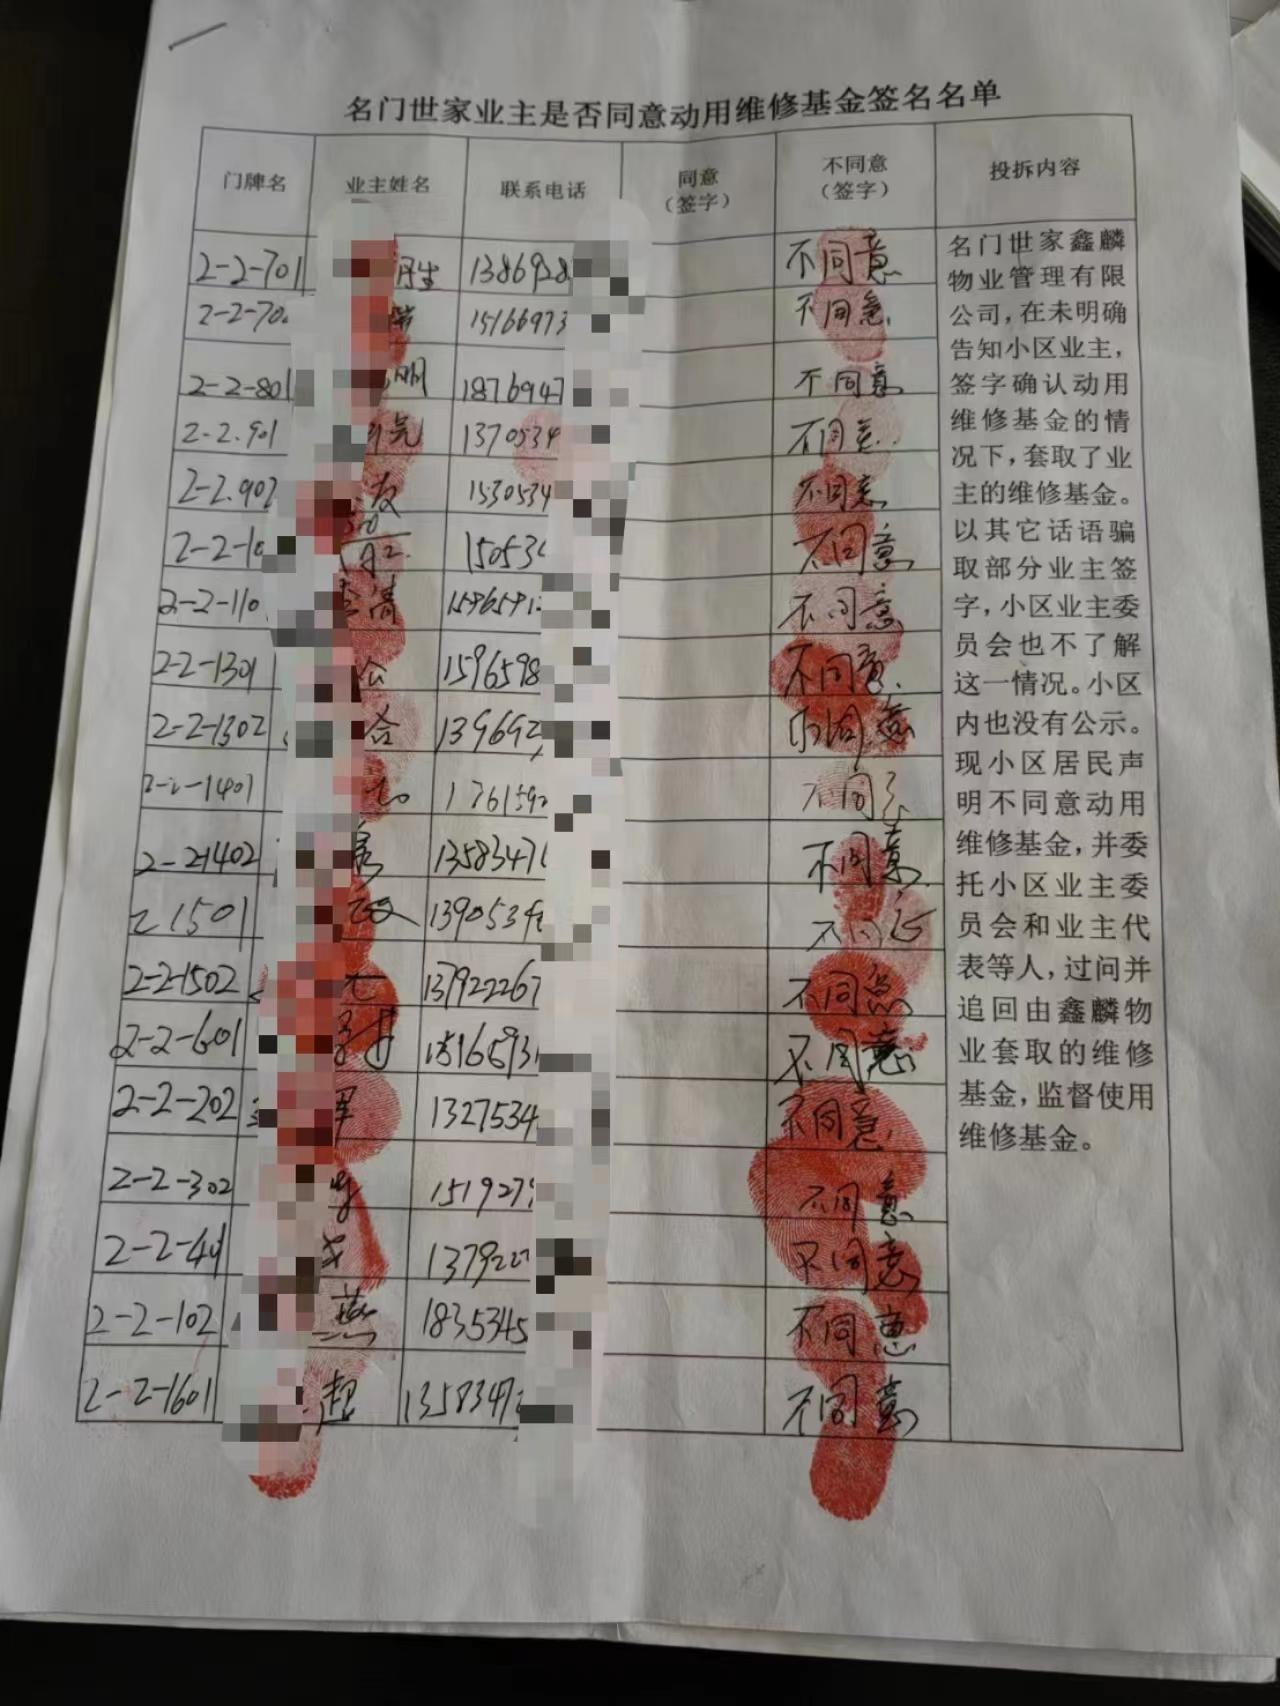 名门世家业主是否同意动用维修基金签名名单
门牌名 业主姓名 联系电话 同意（签字） 不同意（签字） 投拆内容
2-2-701 1386928 不同意
2-2-70 15166973 不同意
2-2-801 明 1876947 不同意
2-2.901 亮 1370534 不同意
2-2.902 友 1530534 不同意
2-2-10 15053 不同意
2-2-110 清 1596591 不同意
2-2-1301 1596598 不同意
2-2-1302 合 139692 不同意
2-2-1401 176159 不同意
2-21402 1358347 不同意
2 1501 政 139053
2-2-1502 137922267 不同意
2-2-601 15166931 不同意
2-2-202 军 1327534 不同意
2-2-302 151927 不同意
2-2-401 137922 不同意
2-2-102 燕 1835345 不同意
2-2-1601 超 1358347 不同意
名门世家鑫麟
物业管理有限
公司，在未明确
告知小区业主，
签字确认动用
维修基金的情
况下，套取了业
主的维修基金。
以其它话语骗
取部分业主签
字，小区业主委
员会也不了解
这一情况。小区
内也没有公示。
现小区居民声
明不同意动用
维修基金，并委
托小区业主委
员会和业主代
表等人，过问并
追回由鑫麟物
业套取的维修
基金，监督使用
维修基金。